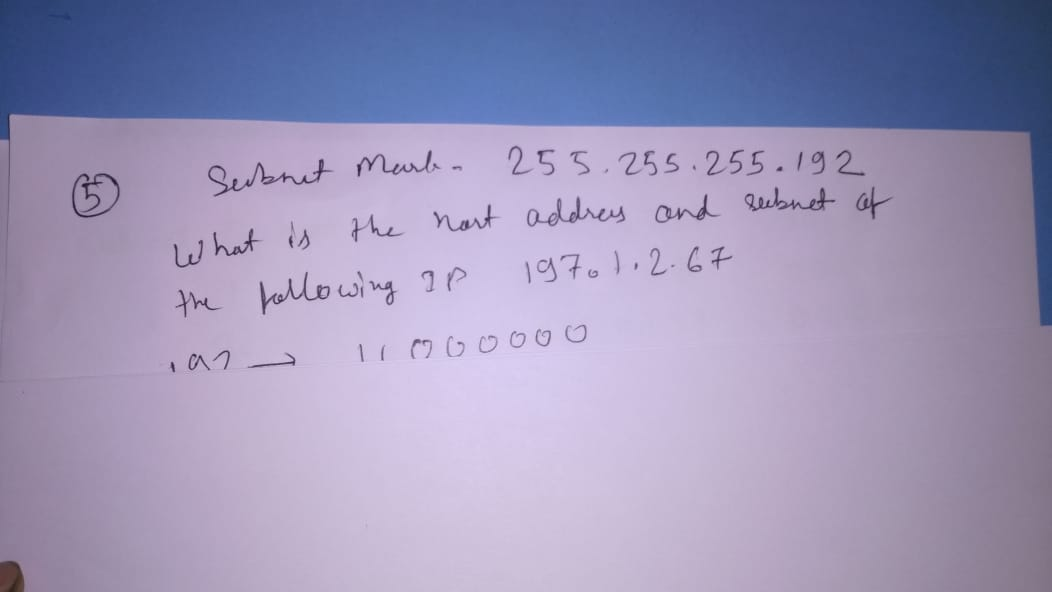 5
Subnet Mask - 255.255.255.192
What is the Host address and subnet of
the following IP 197.1.2.67
192 → 11000000